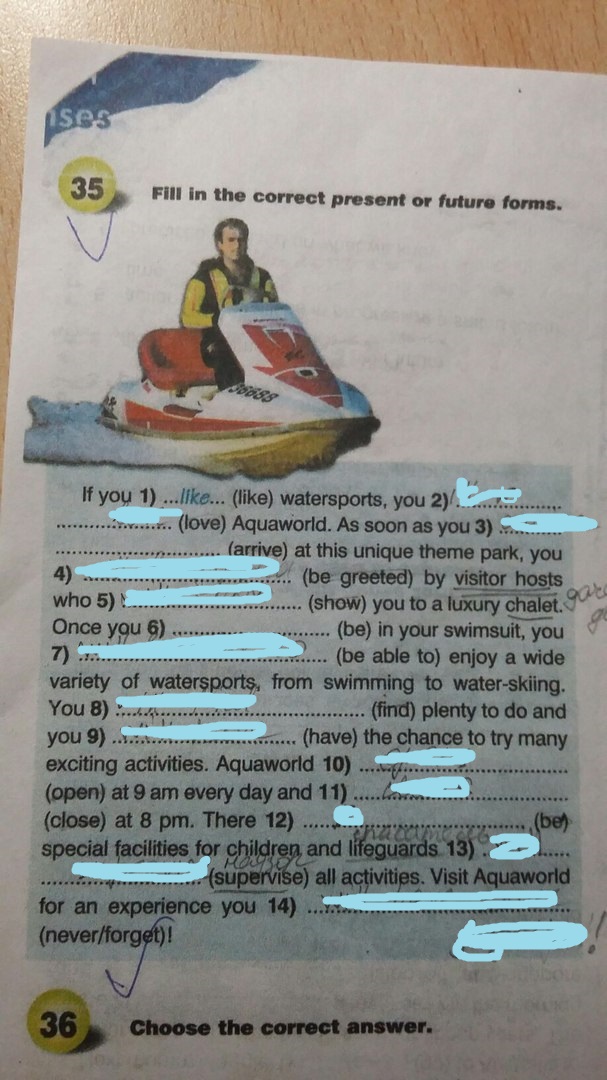 ises
35 Fill in the correct present or future forms.
36688
If you 1) ...like... (like) watersports, you 2) ..................
.................. (love) Aquaworld. As soon as you 3) ..................
.................. (arrive) at this unique theme park, you
4) .................. (be greeted) by visitor hosts
who 5) .................. (show) you to a luxury chalet.
Once you 6) .................. (be) in your swimsuit, you
7) .................. (be able to) enjoy a wide
variety of watersports, from swimming to water-skiing.
You 8) .................. (find) plenty to do and
you 9) .................. (have) the chance to try many
exciting activities. Aquaworld 10) ..................
(open) at 9 am every day and 11) ..................
(close) at 8 pm. There 12) .................. (be)
special facilities for children and lifeguards 13) ..................
.................. (supervise) all activities. Visit Aquaworld
for an experience you 14) ..................
(never/forget)!
36 Choose the correct answer.